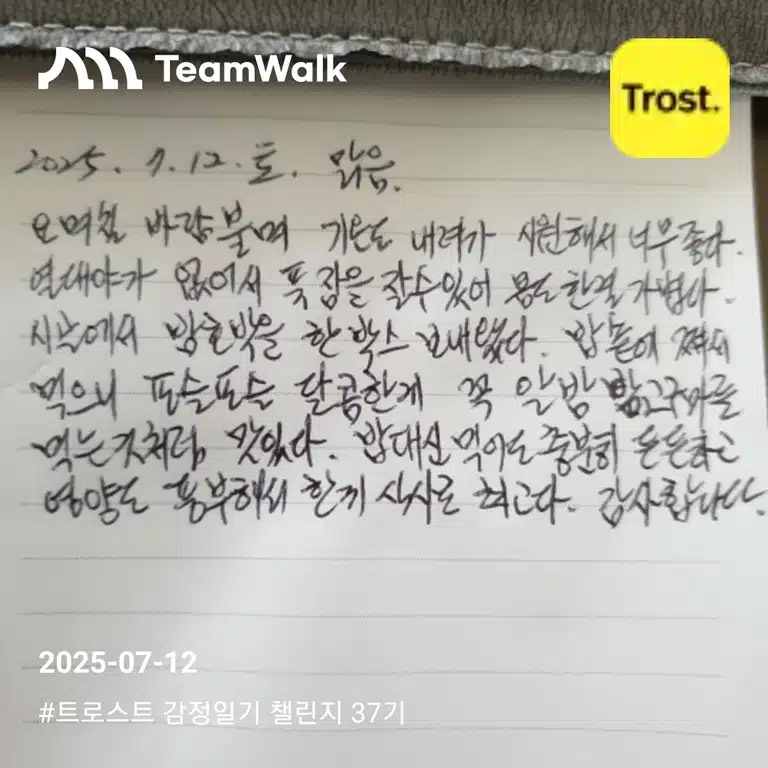 TeamWalk
Trost.
2025. 7. 12. 토. 맑음.
요며칠 바람불며 기온도 내려가 시원해서 너무좋다.
열대야가 없어서 푹 잠을 잘수있어 몸도 한결 가볍다.
시누에서 밤호박을 한 박스 보내왔다. 밥솥에 쪄서
먹으니 포슬포슬 달콤한게 꼭 알밤 밤고구마를
먹는것처럼 맛있다. 밥대신 먹어도 충분히 든든하고
영양도 풍부해서 한끼 식사로 최고다. 감사합니다.
2025-07-12
#트로스트 감정일기 챌린지 37기